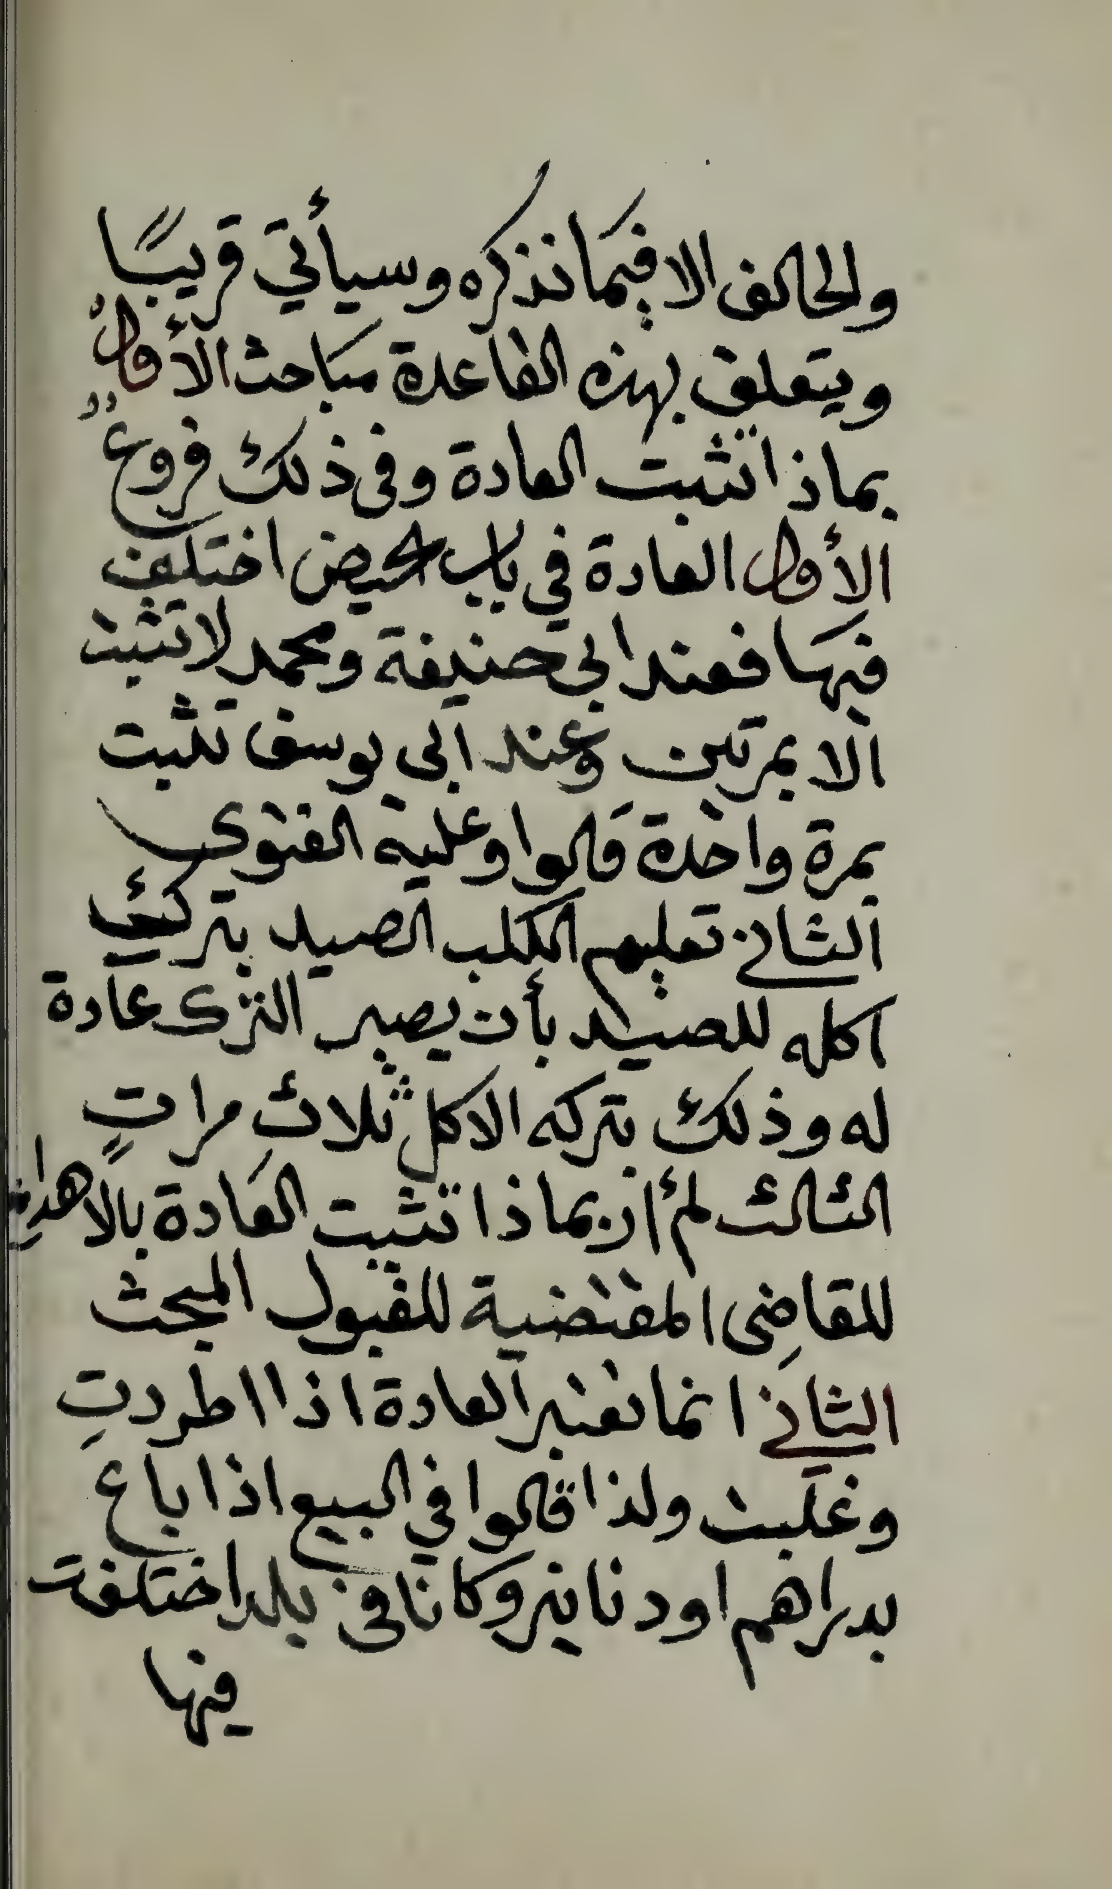 والحالف الا فيما نذكره وسيأتي قريبًا
ويتعلق بهذه القاعدة مباحث الأول
بماذا تثبت العادة وفي ذلك فروعٌ
الأول العادة في باب الحيض اختلف
فيها فعند ابي حنيفة ومحمد لا تثبت
الا بمرتين وعند ابي يوسف تثبت
بمرة واحدة قالوا وعليه الفتوى
الثاني تعليم الكلب الصيد بترك
اكله للصيد بأن يصير الترك عادة
له وذلك بتركه الاكل ثلاث مراتٍ
الثالث لم أر بماذا تثبت العادة بالاهداء
للقاضي المقتضية للقبول المبحث
الثاني انما تعتبر العادة اذا اطردتِ
وغلبت ولذا قالوا في البيع اذا باع
بدراهم اودنانير وكانا في بلد اختلفت
فيها